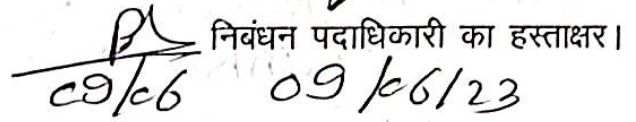 निबंधन पदाधिकारी का हस्ताक्षर।
09/06 09/06/23